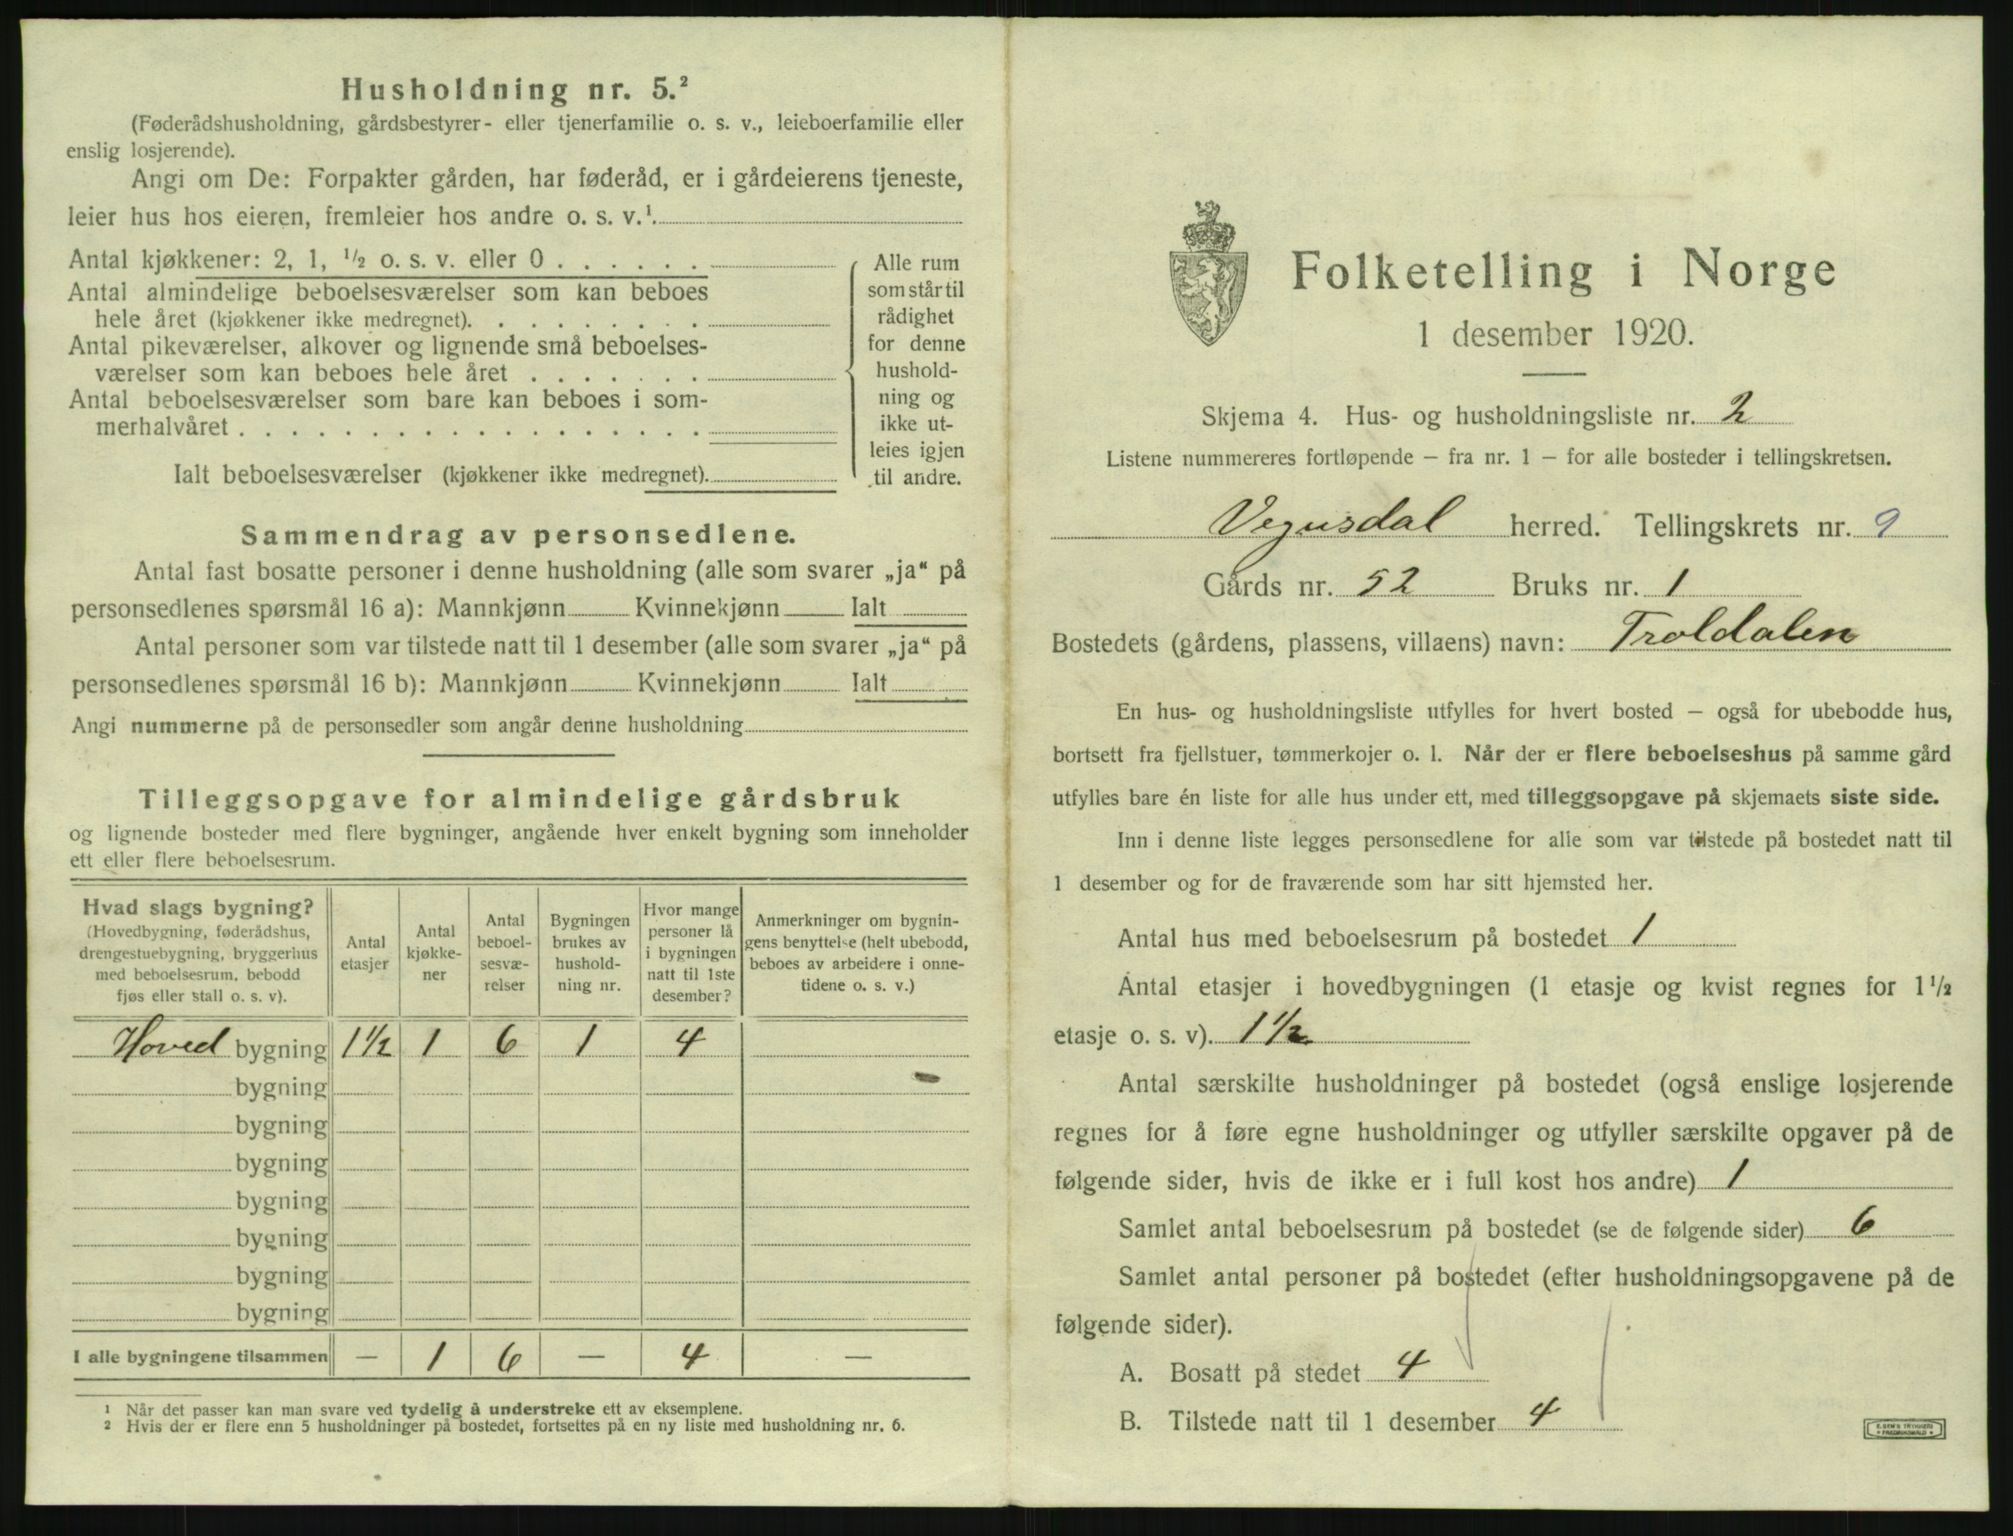 Husholdning nr. 5.²
(Føderådshusholdning, gårdsbestyrer- eller tjenerfamilie o. s. v., leieboerfamilie eller
enslig losjerende).
Angi om De: Forpakter gården, har føderåd, er i gårdeierens tjeneste,
leier hus hos eieren, fremleier hos andre o. s. v.¹
Antal kjøkkener: 2, 1, ½ o. s. v. eller 0
Antal almindelige beboelsesværelser som kan beboes
hele året (kjøkkener ikke medregnet).
Antal pikeværelser, alkover og lignende små beboelses-
værelser som kan beboes hele året
Antal beboelsesværelser som bare kan beboes i som-
merhalvåret
Ialt beboelsesværelser (kjøkkener ikke medregnet).
Alle rum
som står til
rådighet
for denne
hushold-
ning og
ikke ut-
leies igjen
til andre.
Sammendrag av personsedlene.
Antal fast bosatte personer i denne husholdning (alle som svarer „ja“ på
personsedlenes spørsmål 16 a): Mannkjønn Kvinnekjønn Ialt
Antal personer som var tilstede natt til 1 desember (alle som svarer „ja“ på
personsedlenes spørsmål 16 b): Mannkjønn Kvinnekjønn Ialt
Angi nummerne på de personsedler som angår denne husholdning
Tilleggsopgave for almindelige gårdsbruk
og lignende bosteder med flere bygninger, angående hver enkelt bygning som inneholder
ett eller flere beboelsesrum.
Hvad slags bygning?
(Hovedbygning, føderådshus,
drengestuebygning, bryggerhus
med beboelsesrum, bebodd
fjøs eller stall o. s. v).
Antal
etasjer
Antal
kjøkke-
ner
Antal
beboel-
sesvæ-
relser
Bygningen
brukes av
hushold-
ning nr.
Hvor mange
personer lå
i bygningen
natt til 1ste
desember?
Anmerkninger om bygnin-
gens benyttelse (helt ubebodd,
beboes av arbeidere i onne-
tidene o. s. v.)
Hoved bygning 1½ 1 6 1 4
bygning
bygning
bygning
bygning
bygning
bygning
bygning
I alle bygningene tilsammen — 1 6 — 4 —
1 Når det passer kan man svare ved tydelig å understreke ett av eksemplene.
2 Hvis der er flere enn 5 husholdninger på bostedet, fortsettes på en ny liste med husholdning nr. 6.
Folketelling i Norge
1 desember 1920.
Skjema 4. Hus- og husholdningsliste nr. 2
Listene nummereres fortløpende – fra nr. 1 – for alle bosteder i tellingskretsen.
Vegusdal herred. Tellingskrets nr. 9
Gårds nr. 52 Bruks nr. 1
Bostedets (gårdens, plassens, villaens) navn: Troldalen
En hus- og husholdningsliste utfylles for hvert bosted – også for ubebodde hus,
bortsett fra fjellstuer, tømmerkojer o. l. Når der er flere beboelseshus på samme gård
utfylles bare én liste for alle hus under ett, med tilleggsopgave på skjemaets siste side.
Inn i denne liste legges personsedlene for alle som var tilstede på bostedet natt til
1 desember og for de fraværende som har sitt hjemsted her.
Antal hus med beboelsesrum på bostedet 1
Antal etasjer i hovedbygningen (1 etasje og kvist regnes for 1½
etasje o. s. v). 1½
Antal særskilte husholdninger på bostedet (også enslige losjerende
regnes for å føre egne husholdninger og utfyller særskilte opgaver på de
følgende sider, hvis de ikke er i full kost hos andre) 1
Samlet antal beboelsesrum på bostedet (se de følgende sider) 6
Samlet antal personer på bostedet (efter husholdningsopgavene på de
følgende sider).
A. Bosatt på stedet 4
B. Tilstede natt til 1 desember 4